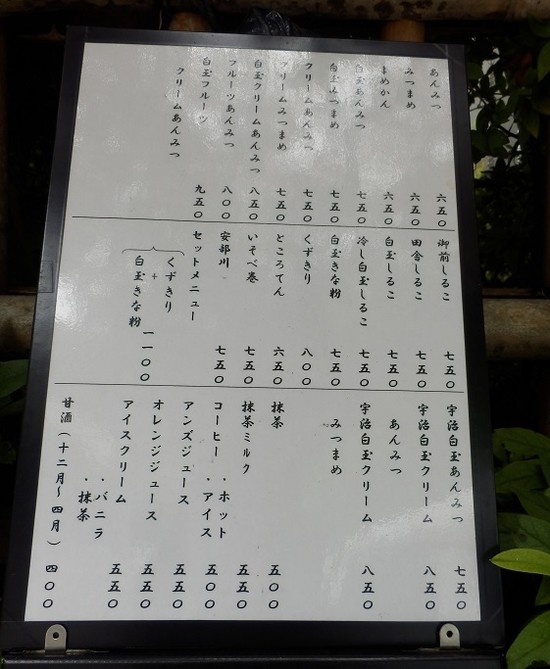 あんみつ 六五〇
みつまめ 六五〇
まめかん 六五〇
白玉あんみつ 七五〇
白玉みつまめ 七五〇
クリームあんみつ 七五〇
クリームみつまめ 七五〇
白玉クリームあんみつ 八五〇
フルーツあんみつ 八〇〇
白玉フルーツ
クリームあんみつ 九五〇
御前しるこ 七五〇
田舎しるこ 七五〇
白玉しるこ 七五〇
冷し白玉しるこ 七五〇
白玉きな粉 七五〇
くずきり 八〇〇
ところてん 六五〇
いそべ巻 七五〇
安部川 七五〇
セットメニュー
くずきり
+
白玉きな粉 一一〇〇
宇治白玉あんみつ 七五〇
宇治白玉クリーム
あんみつ 八五〇
宇治白玉クリーム
みつまめ 八五〇
抹茶 五〇〇
抹茶ミルク 五五〇
コーヒー ・ホット
・アイス 五〇〇
アンズジュース 五五〇
オレンジジュース 五五〇
アイスクリーム 五五〇
・バニラ
・抹茶
甘酒（十二月〜四月） 四〇〇